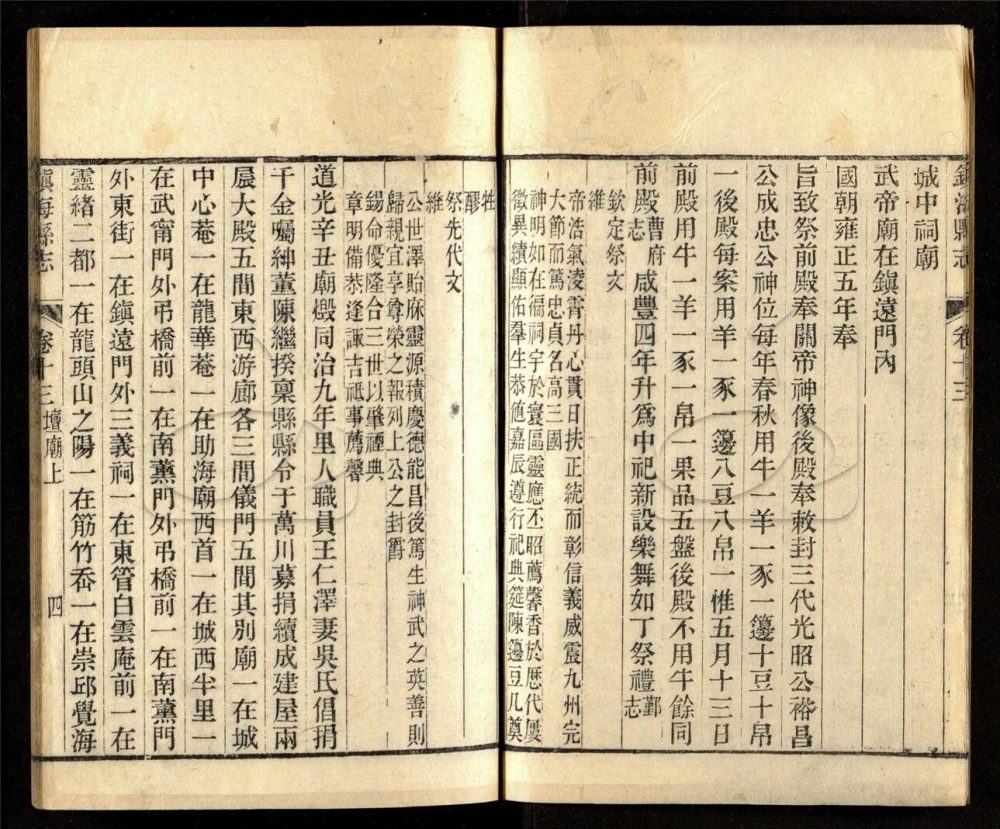 鎮海縣志　卷十三
城中祠廟
武帝廟在鎮遠門內
國朝雍正五年奉
旨致祭前殿奉關帝神像後殿奉敕封三代光昭公裕昌
公成忠公神位每年春秋用牛一羊一豕一籩十豆十帛
一後殿每案用羊一豕一籩八豆八帛一惟五月十三日
前殿用牛一羊一豕一帛一果品五盤後殿不用牛餘同
前殿曹府志咸豐四年升爲中祀新設樂舞如丁祭禮鄞志
欽定祭文
維
帝浩氣凌霄丹心貫日扶正統而彰信義威震九州完
大節而篤忠貞名高三國
神明如在徧祠宇於寰區靈應丕昭薦馨香於歷代屢
徵異績顯佑羣生恭値嘉辰遵行祀典筵陳籩豆几奠
牲醪
祭先代文
維
公世澤貽庥靈源積慶德能昌後篤生神武之英善則
歸親宜享尊榮之報列上公之封爵
錫命優隆合三世以肇禋典
章明備恭逢諏吉祗事薦馨
道光辛丑廟燬同治九年里人職員王仁澤妻吳氏倡捐
千金囑紳董陳繼揆稟縣縣令于萬川募捐續成建屋兩
層大殿五間東西游廊各三間儀門五間其別廟一在城
中心菴一在龍華菴一在助海廟西首一在城西半里一
在武甯門外弔橋前一在南薰門外弔橋前一在南薰門
外東街一在鎮遠門外三義祠一在東管白雲庵前一在
靈緒二都一在龍頭山之陽一在筋竹岙一在崇邱覺海
鎮海縣志　卷十三　壇廟上　四